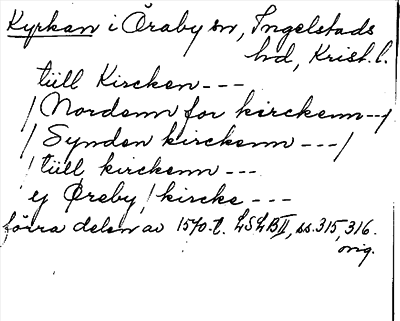 Kyrkan i Öraby sn, Ingelstads
hd, Krist. l.
tüll Kircken ---
/ Nordenn for kirckenn --/
/ Synden kirckenn ---/
/ tüll kirckenn ---
ey Øreby / kircke ---
förra delen av 1570-t. LSLB II, ss. 315, 316.
orig.